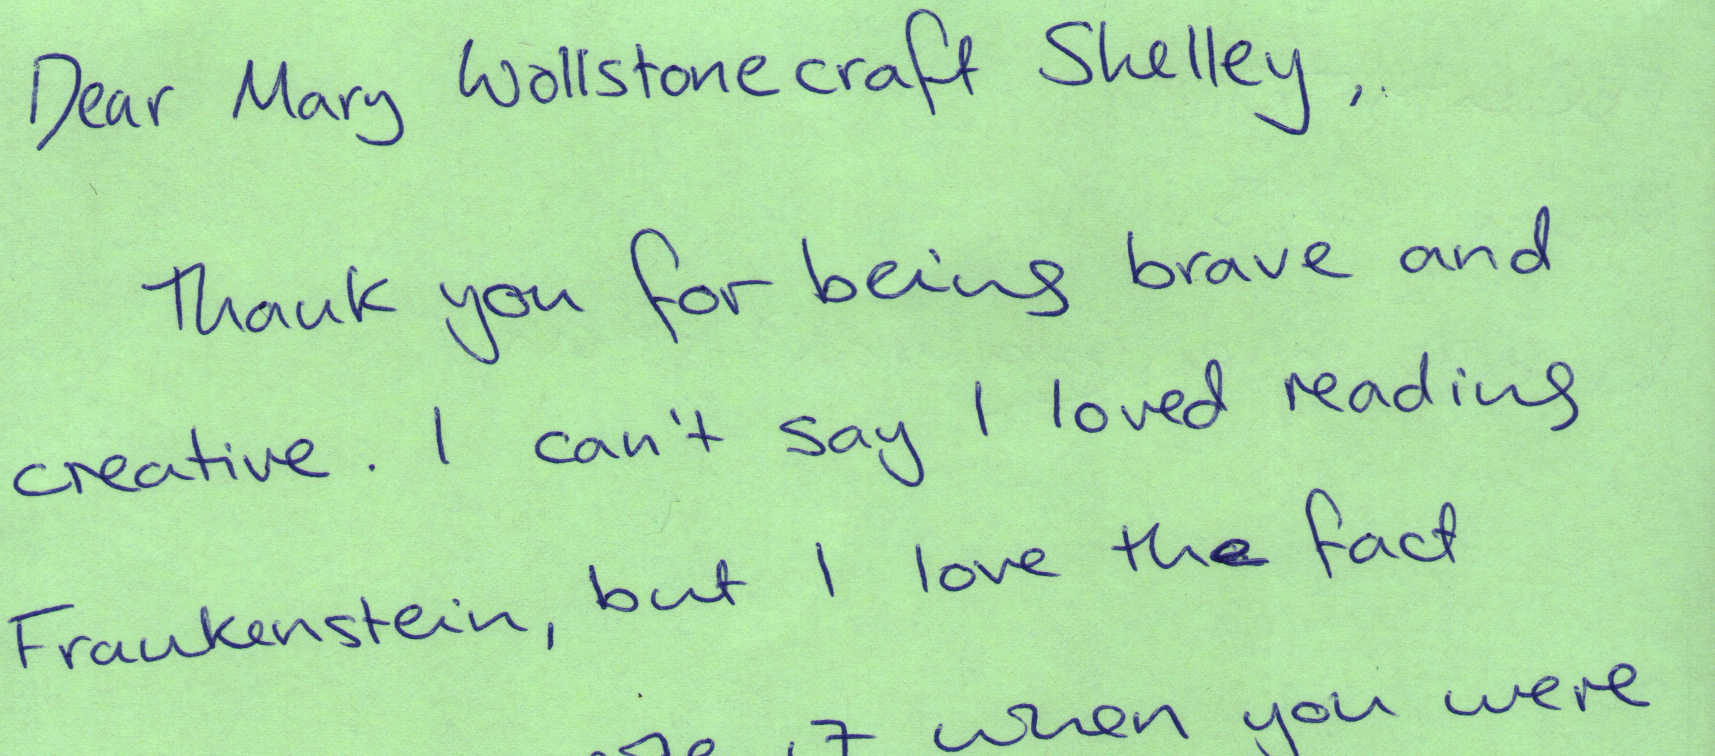 Dear Mary Wollstonecraft Shelley,
Thank you for being brave and
creative. I can't say I loved reading
Frankenstein, but I love the fact
it when you were